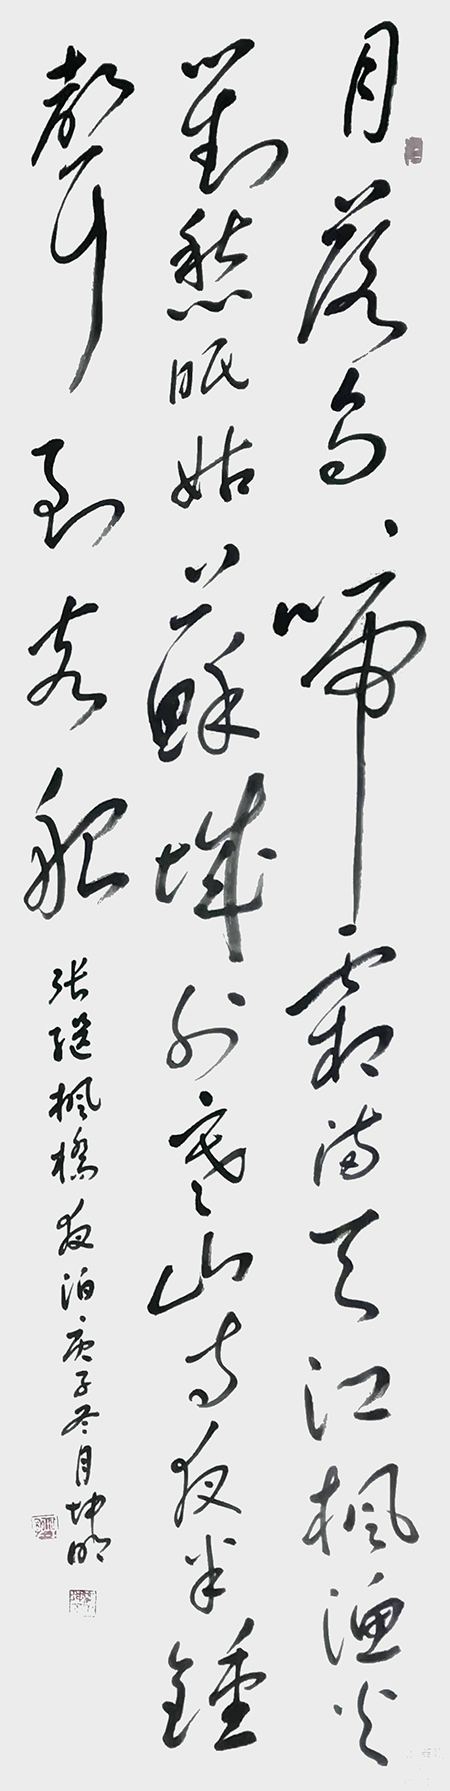 月落乌啼霜满天江枫渔火
对愁眠姑苏城外寒山寺夜半鍾
声到客船
张继枫桥夜泊庚子冬月坤明